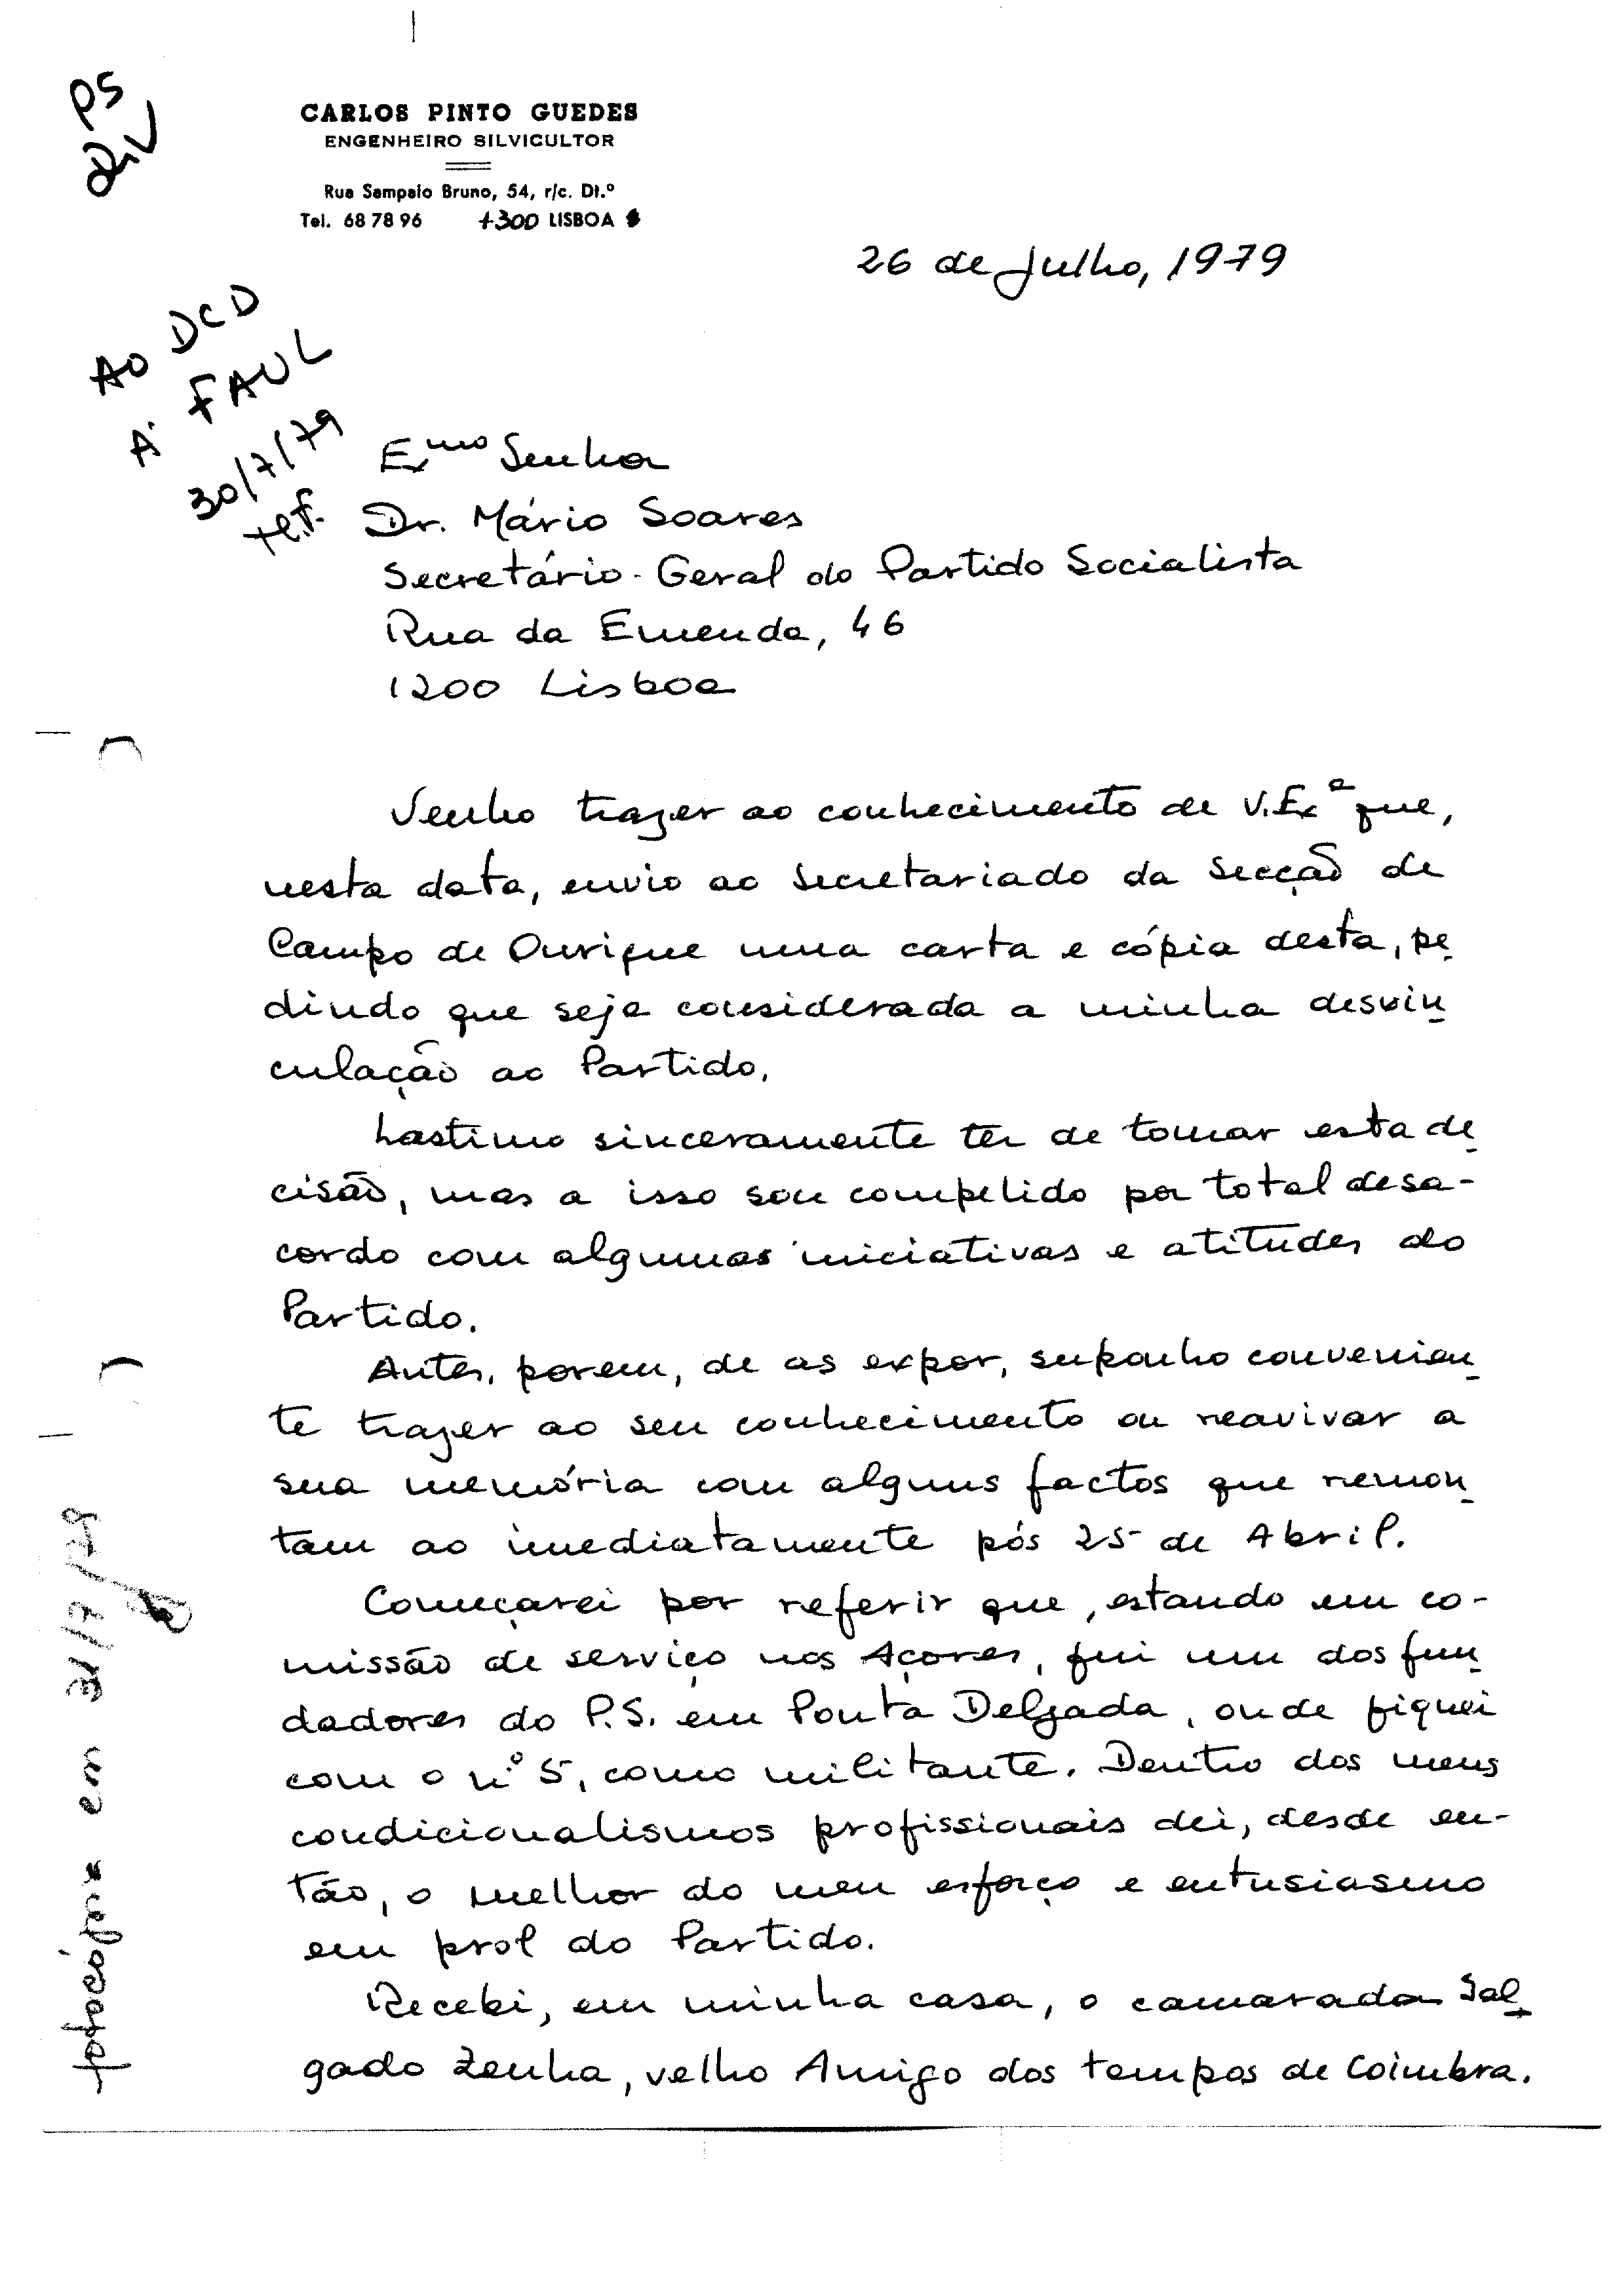 PS
Div
CARLOS PINTO GUEDES
ENGENHEIRO SILVICULTOR
Rua Sampaio Bruno, 54, r/c. Dt.º
Tel. 68 78 96 1300 LISBOA
26 de Julho, 1979
Ao DCD
À FAUL
30/7/79
Exmo Senhor
Dr. Mário Soares
Secretário-Geral do Partido Socialista
Rua da Emenda, 46
1200 Lisboa
Venho trazer ao conhecimento de V. Exª que,
nesta data, envio ao Secretariado da Secção de
Campo de Ourique uma carta e cópia desta, pe
dindo que seja considerada a minha desvin
culação ao Partido.
Lastimo sinceramente ter de tomar esta de
cisão, mas a isso sou compelido por total desa-
cordo com algumas iniciativas e atitudes do
Partido.
Antes, porem, de as expor, suponho convenien
te trazer ao seu conhecimento ou reavivar a
sua memória com alguns factos que remon
tam ao imediatamente pós 25 de Abril.
Começarei por referir que, estando em co-
missão de serviço nos Açores, fui um dos fun
dadores do P.S. em Ponta Delgada, onde fiquei
com o nº 5, como militante. Dentro dos meus
condicionalismos profissionais dei, desde en-
tão, o melhor do meu esforço e entusiasmo
em prol do Partido.
Recebi, em minha casa, o camarada Sal
gado Zenha, velho Amigo dos tempos de Coimbra.
fotocópia em 31/7/79